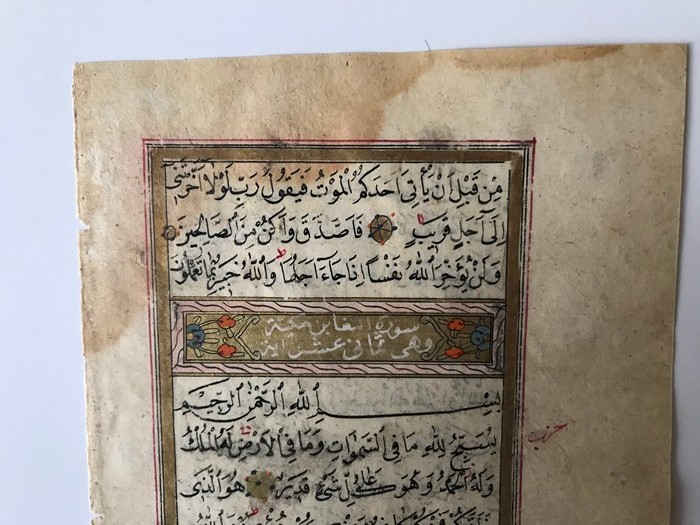 مِنْ قَبْلِ اَنْ يَأْتِىَ اَحَدَكُمُ الْمَوْتُ فَيَقُولَ رَبِّ لَوْلَا اَخَّرْتَنٖى
اِلٰٓى اَجَلٍ قَرٖيبٍ فَاَصَّدَّقَ وَاَكُنْ مِنَ الصَّالِحٖينَ
وَلَنْ يُؤَخِّرَ اللّٰهُ نَفْسًا اِذَا جَٓاءَ اَجَلُهَا وَاللّٰهُ خَبٖيرٌ بِمَا تَعْمَلُونَ
سورة التغابن مكية
وهى ثمانى عشر اية
بِسْــــمِ اللّٰهِ الرَّحْمٰنِ الرَّحٖيمِ
يُسَبِّحُ لِلّٰهِ مَا فِى السَّمٰوَاتِ وَمَا فِى الْاَرْضِ لَهُ الْمُلْكُ
حزب
وَلَهُ الْحَمْدُ وَهُوَ عَلٰى كُلِّ شَىْءٍ قَدٖيرٌ هُوَ الَّذٖى